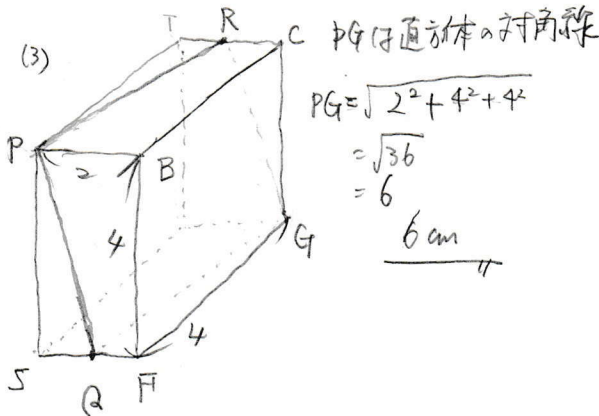 (3)
T
R
C
P
2
B
4
G
4
S
Q
F
PGは直方体の対角線
PG=√2²+4²+4²
=√36
=6
6cm